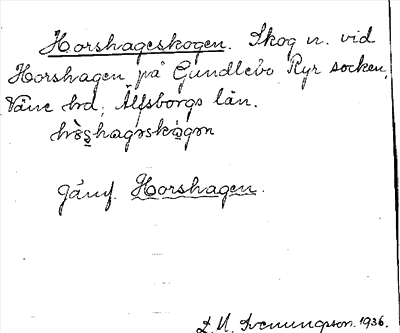 Horshageskogen. Skog n. vid
Horshagen på Gundlebo Ryr socken,
Väne hd, Älfsborgs län.
hɷ̀s̬hagəskɷ̀gən
Jämf. Horshagen.
L. M. Svenungsson. 1936.